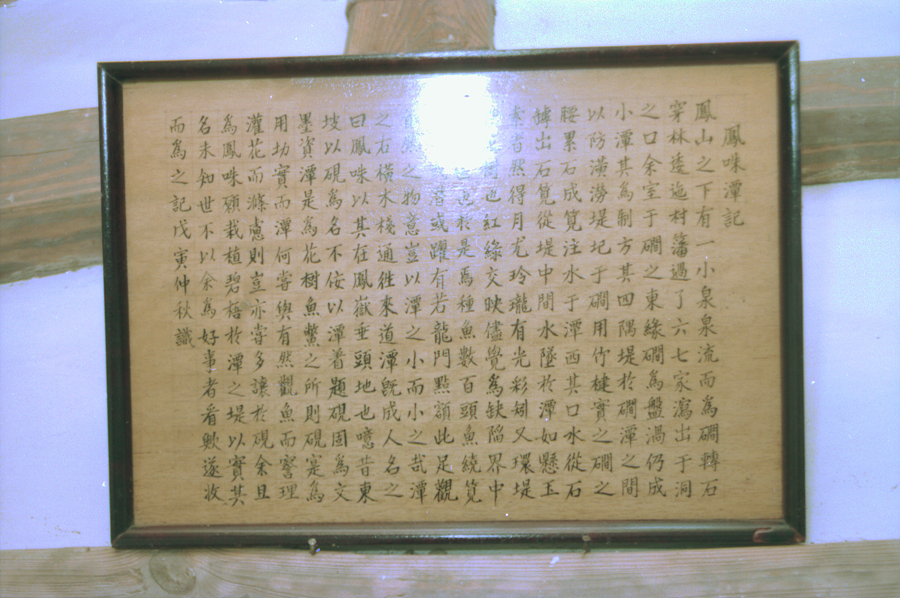 鳳咮潭記
鳳山之下有一小泉泉流而為磵轉石
穿林逶迤村籓過了六七家瀉出于洞
之口余室于磵之東緣磵為盤渦仍成
小潭其為制方其四隅堤於磵潭之間
以防潢潦堤圮于磵用竹揵實之磵之
腰累石成筧注水于潭西其口水從石
轉出石筧從堤中間水墜於潭如懸玉
者然得月尤玲瓏有光彩矧又環堤
也紅綠交映儘覺為缺陷界中
於是焉種魚數百頭魚繞筧
者或躍有若龍門點額此足觀
之物意豈以潭之小而小之哉潭
之右橫木棧通徃來道潭旣成人名之
曰鳳咮以其在鳳嶽垂頭地也噫昔東
坡以硯為名不侫以潭着題硯固為文
墨資潭是為花樹魚鱉之所則硯寔為
用功實而潭何嘗與有然觀魚而窨理
灌花而滌慮則豈亦嘗多讓於硯余且
為鳳咮潁栽植碧梧於潭之堤以實其
名未知世不以余為好事者看歟遂收
而為之記戊寅仲秋識